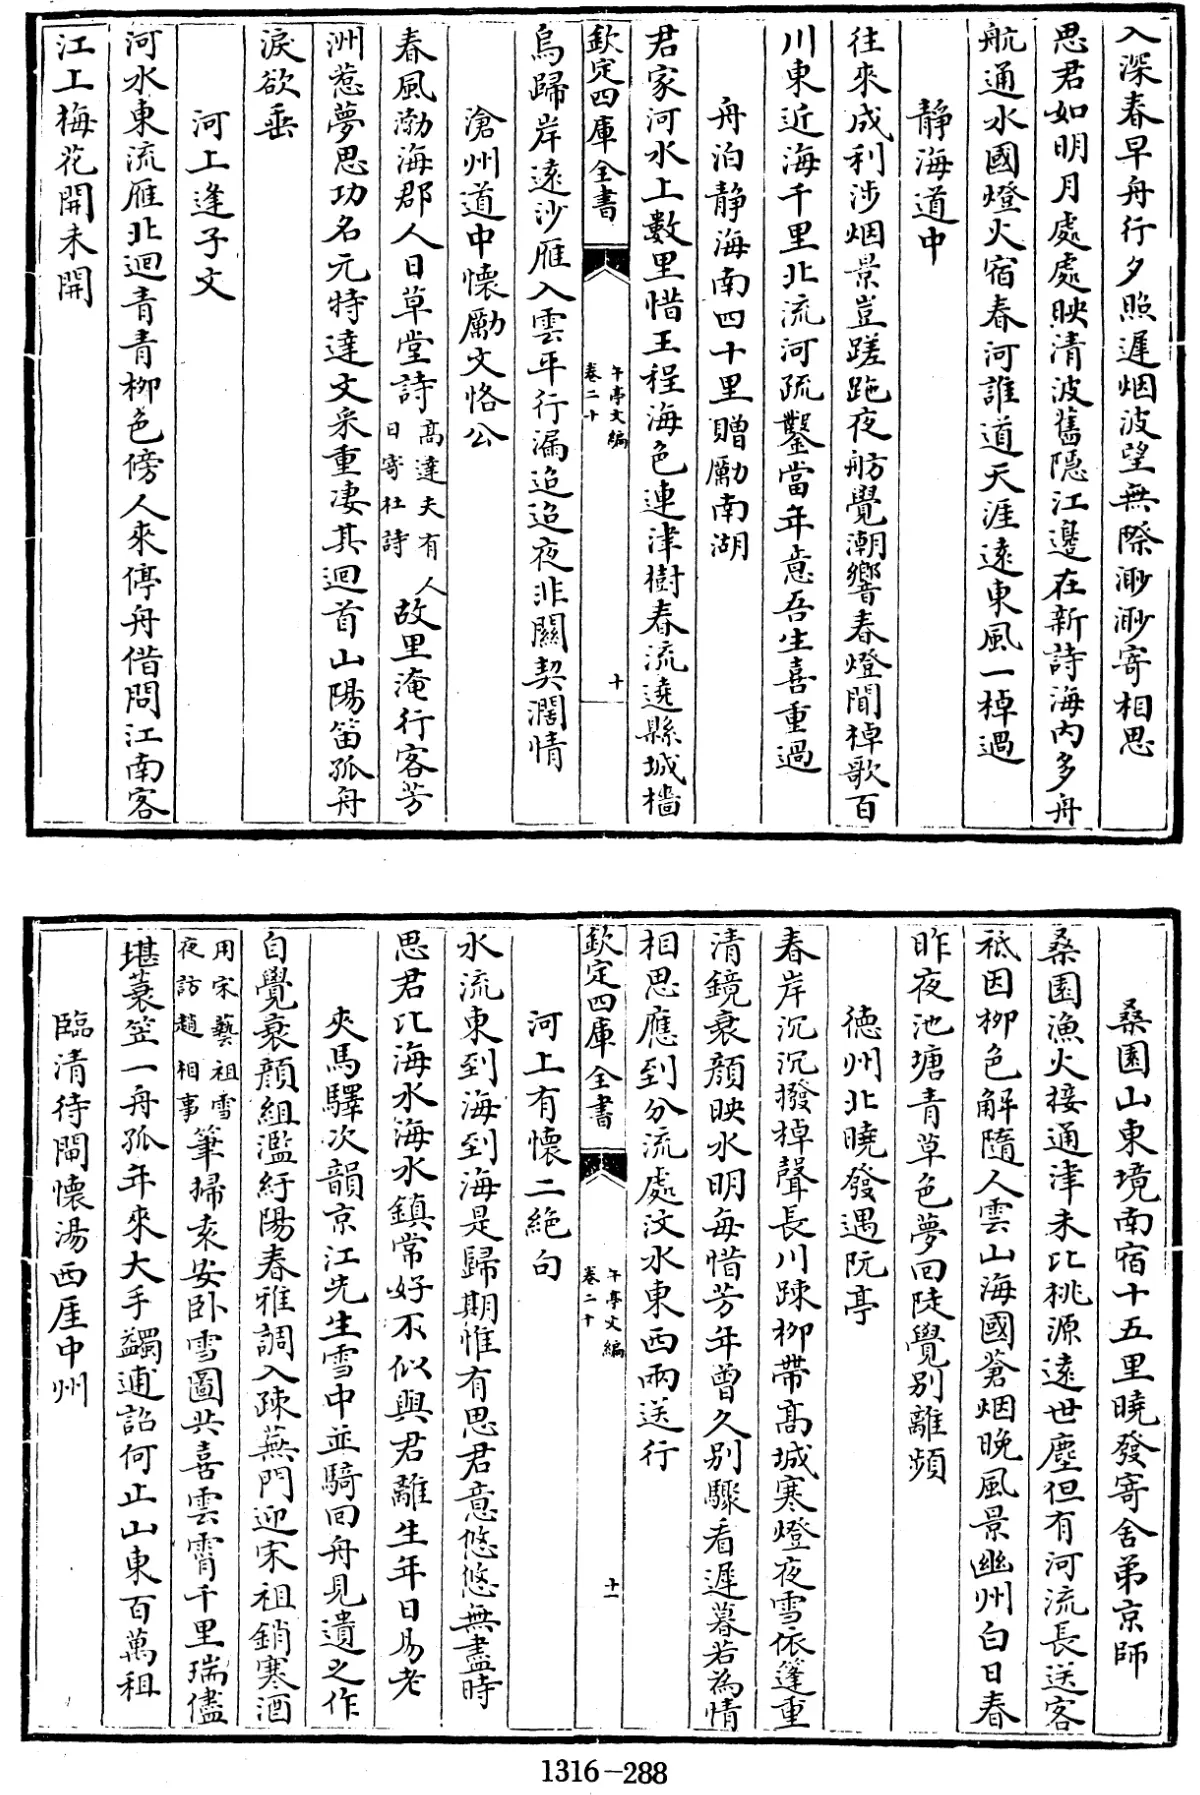 入深春早舟行夕照遲烟波望無際渺渺寄相思
思君如明月處處映清波舊隱江邊在新詩海内多舟
航通水國燈火宿春河誰道天涯遠東風一棹過
静海道中
往來成利涉烟景豈蹉跎夜舫覺潮響春燈聞棹歌百
川東近海千里北流河疏鑿當年意吾生喜重過
舟泊静海南四十里贈勵南湖
君家河水上數里惜王程海色連津樹春流遶縣城檣
欽定四庫全書
午亭文編
卷二十
十
烏歸岸遠沙雁入雲平行漏迢迢夜非關契濶情
滄州道中懷勵文恪公
春風渤海郡人日草堂詩
高達夫有人
日寄杜詩
故里淹行客芳
洲惹夢思功名元特達文采重凄其迴首山陽笛孤舟
淚欲垂
河上逢子文
河水東流雁北迴青青柳色傍人來停舟借問江南客
江上梅花開未開
桑園山東境南宿十五里曉發寄舍弟京師
桑園漁火接通津未比桃源遠世塵但有河流長送客
祗因柳色解隨人雲山海國蒼烟晚風景幽州白日春
昨夜池塘青草色夢回陡覺别離頻
德州北曉發遇阮亭
春岸沉沉撥棹聲長川踈柳帶高城寒燈夜雪依篷重
清鏡衰顔映水明每惜芳年曾久别驟看遲暮若為情
相思應到分流處汶水東西兩送行
欽定四庫全書
午亭文編
卷二十
十一
河上有懷二絶句
水流東到海到海是歸期惟有思君意悠悠無盡時
思君比海水海水鎮常好不似與君離生年日易老
夾馬驛次韻京江先生雪中並騎回舟見遺之作
自覺衰顔組濫紆陽春雅調入疎蕪門迎宋祖銷寒酒
用宋藝祖雪
夜訪趙相事
筆掃袁安卧雪圖共喜雲霄千里瑞儘
堪蓑笠一舟孤年來大手蠲逋詔何止山東百萬租
臨清待閘懷湯西厓中州
1316-288